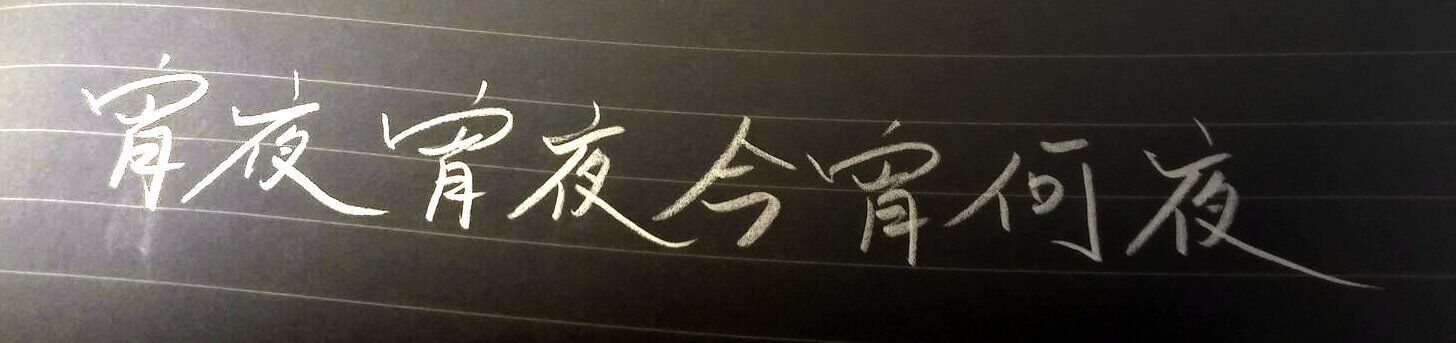 宵夜宵夜今宵何夜